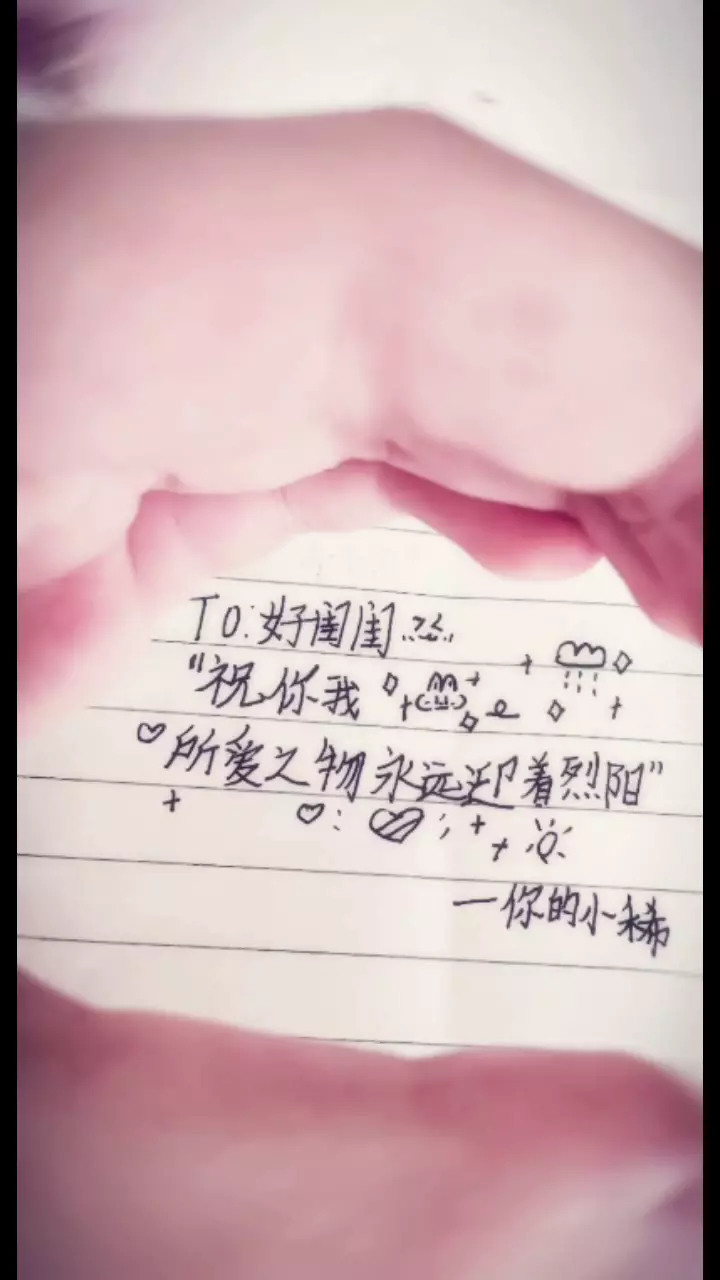 TO:好闺闺
"祝你我
所爱之物永远迎着烈阳"
一你的小稀